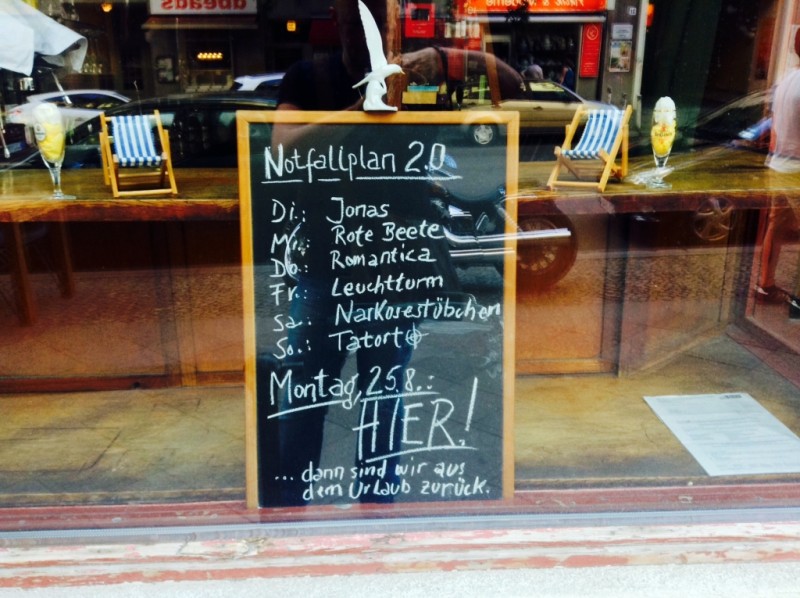 Notfallplan 2.0
Di.: Jonas
Mi.: Rote Beete
Do.: Romantica
Fr.: Leuchtturm
Sa.: Narkosestübchen
So.: Tatort
Montag, 25.8.:
HIER!
... dann sind wir aus
dem Urlaub zurück.